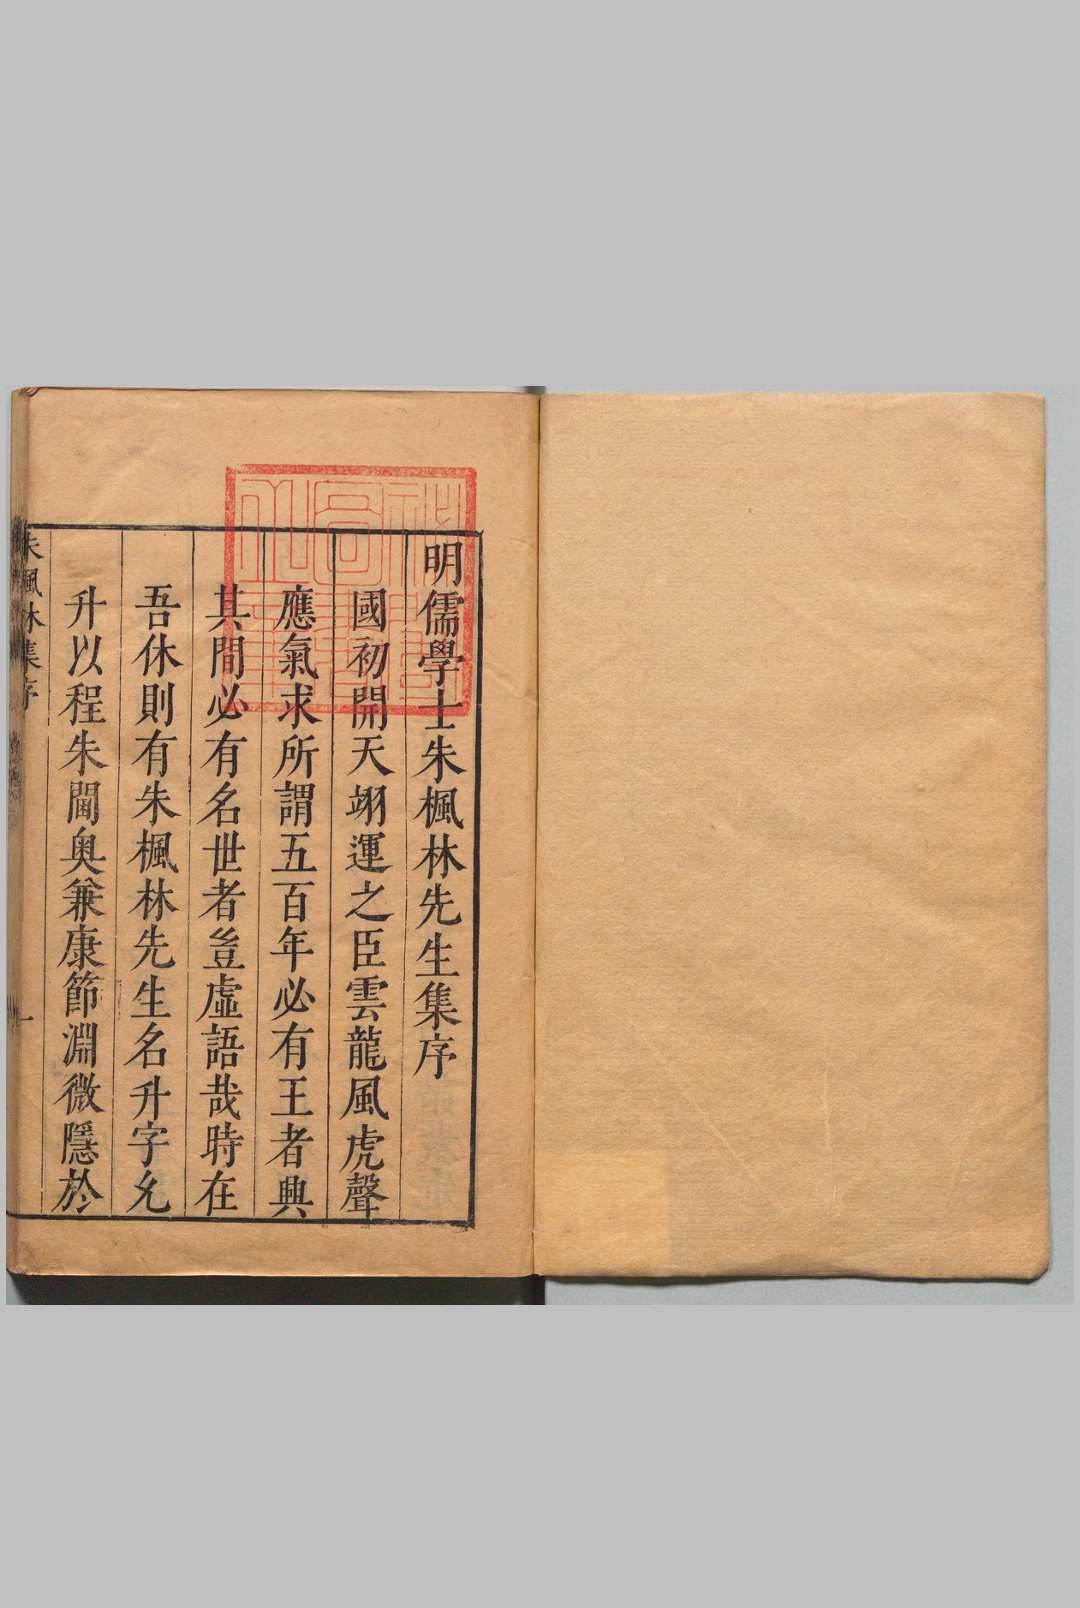 明儒學士朱楓林先生集序
國初開天翊運之臣雲龍風虎聲
應氣求所謂五百年必有王者興
其間必有名世者豈虛語哉時在
吾休則有朱楓林先生名升字允
升以程朱閫奧兼康節淵微隱於
朱楓林集序
一